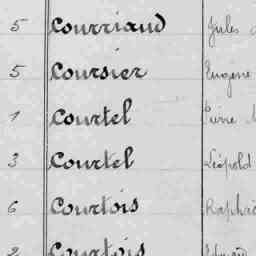 5 Courriaud Jules
5 Coursier Eugène
1 Courtel Pierre
3 Courtel Léopold
6 Courtois Raphaë
2 Courtois